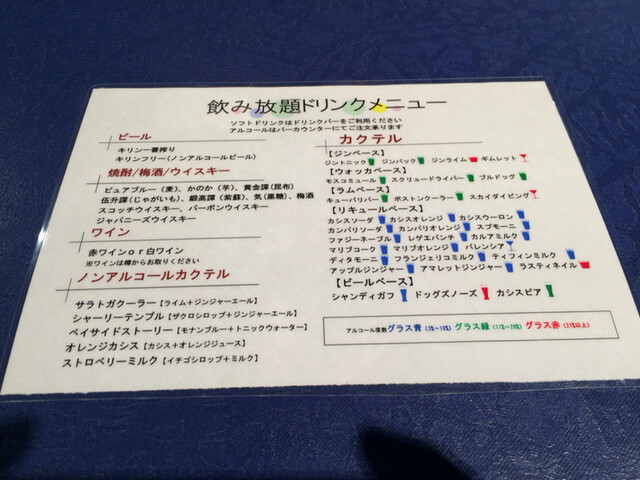 飲み放題ドリンクメニュー
ソフトドリンクはドリンクバーをご利用ください
アルコールはバーカウンターにてご注文承ります
ビール
キリン一番搾り
キリンフリー(ノンアルコールビール)
焼酎/梅酒/ウイスキー
ピュアブルー(麦)、かのか(芋)、黄金譚(昆布)
伍升譚(じゃがいも)、鍛高譚(紫蘇)、気(黒糖)、梅酒
スコッチウイスキー、バーボンウイスキー
ジャパニーズウイスキー
ワイン
赤ワインor白ワイン
※ワインは樽からお取りください
ノンアルコールカクテル
サラトガクーラー[ライム+ジンジャーエール]
シャーリーテンプル[ザクロシロップ+ジンジャーエール]
ベイサイドストーリー[モナンブルー+トニックウォーター]
オレンジカシス[カシス+オレンジジュース]
ストロベリーミルク[イチゴシロップ+ミルク]
カクテル
【ジンベース】
ジントニック ジンバック ジンライム ギムレット
【ウォッカベース】
モスコミュール スクリュードライバー ブルドッグ
【ラムベース】
キューバリバー ボストンクーラー スカイダイビング
【リキュールベース】
カシスソーダ カシスオレンジ カシスウーロン
カンパリソーダ カンパリオレンジ スプモーニ
ファジーネーブル レゲエパンチ カルアミルク
マリブコーク マリブオレンジ バレンシア
ディタモーニ フランジェリコミルク ティフィンミルク
アップルジンジャー アマレットジンジャー ラスティネイル
【ビールベース】
シャンディガフ ドッグズノーズ カシスビア
アルコール度数グラス青(3%~10%) グラス緑(11%~20%) グラス赤(21%以上)